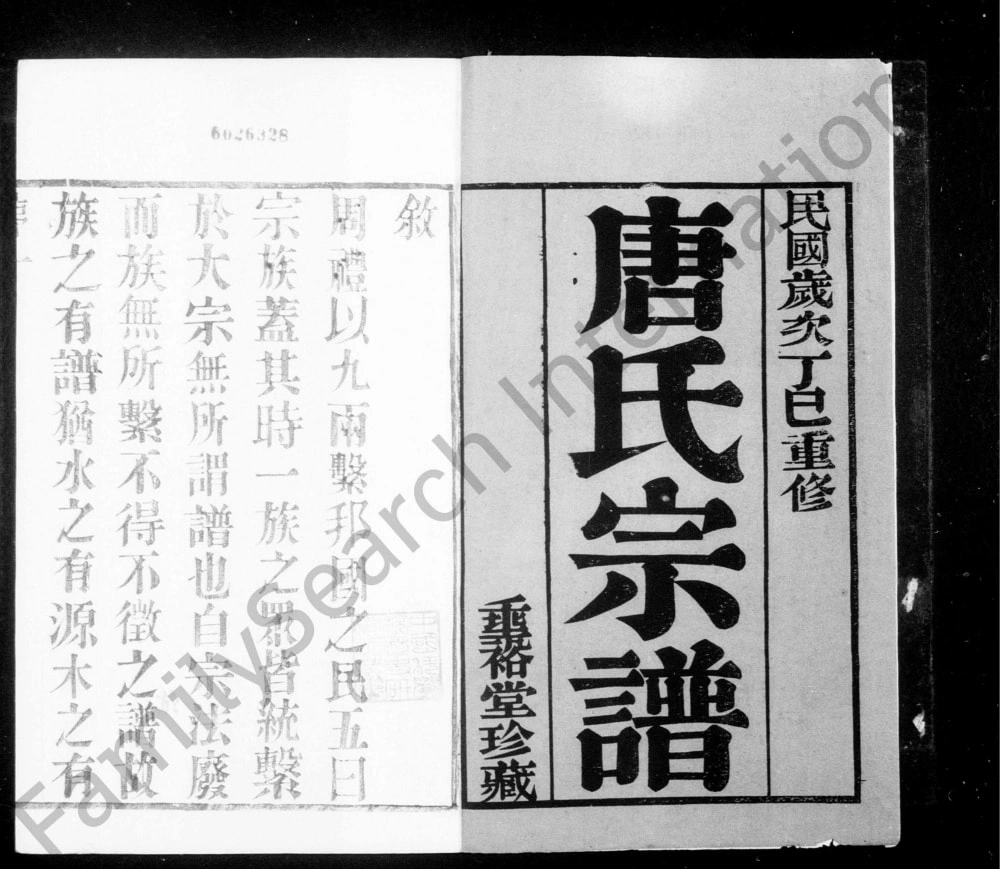 民國歲次丁巳重修
唐氏宗譜
裕堂珍藏
敘
周禮以九兩繫邦國之民五曰
宗族蓋其時一族之眾皆統繫
於大宗無所謂譜也自宗法廢
而族無所繫不得不徵之譜故
族之有譜猶水之有源木之有
6026328
FamilySearch International